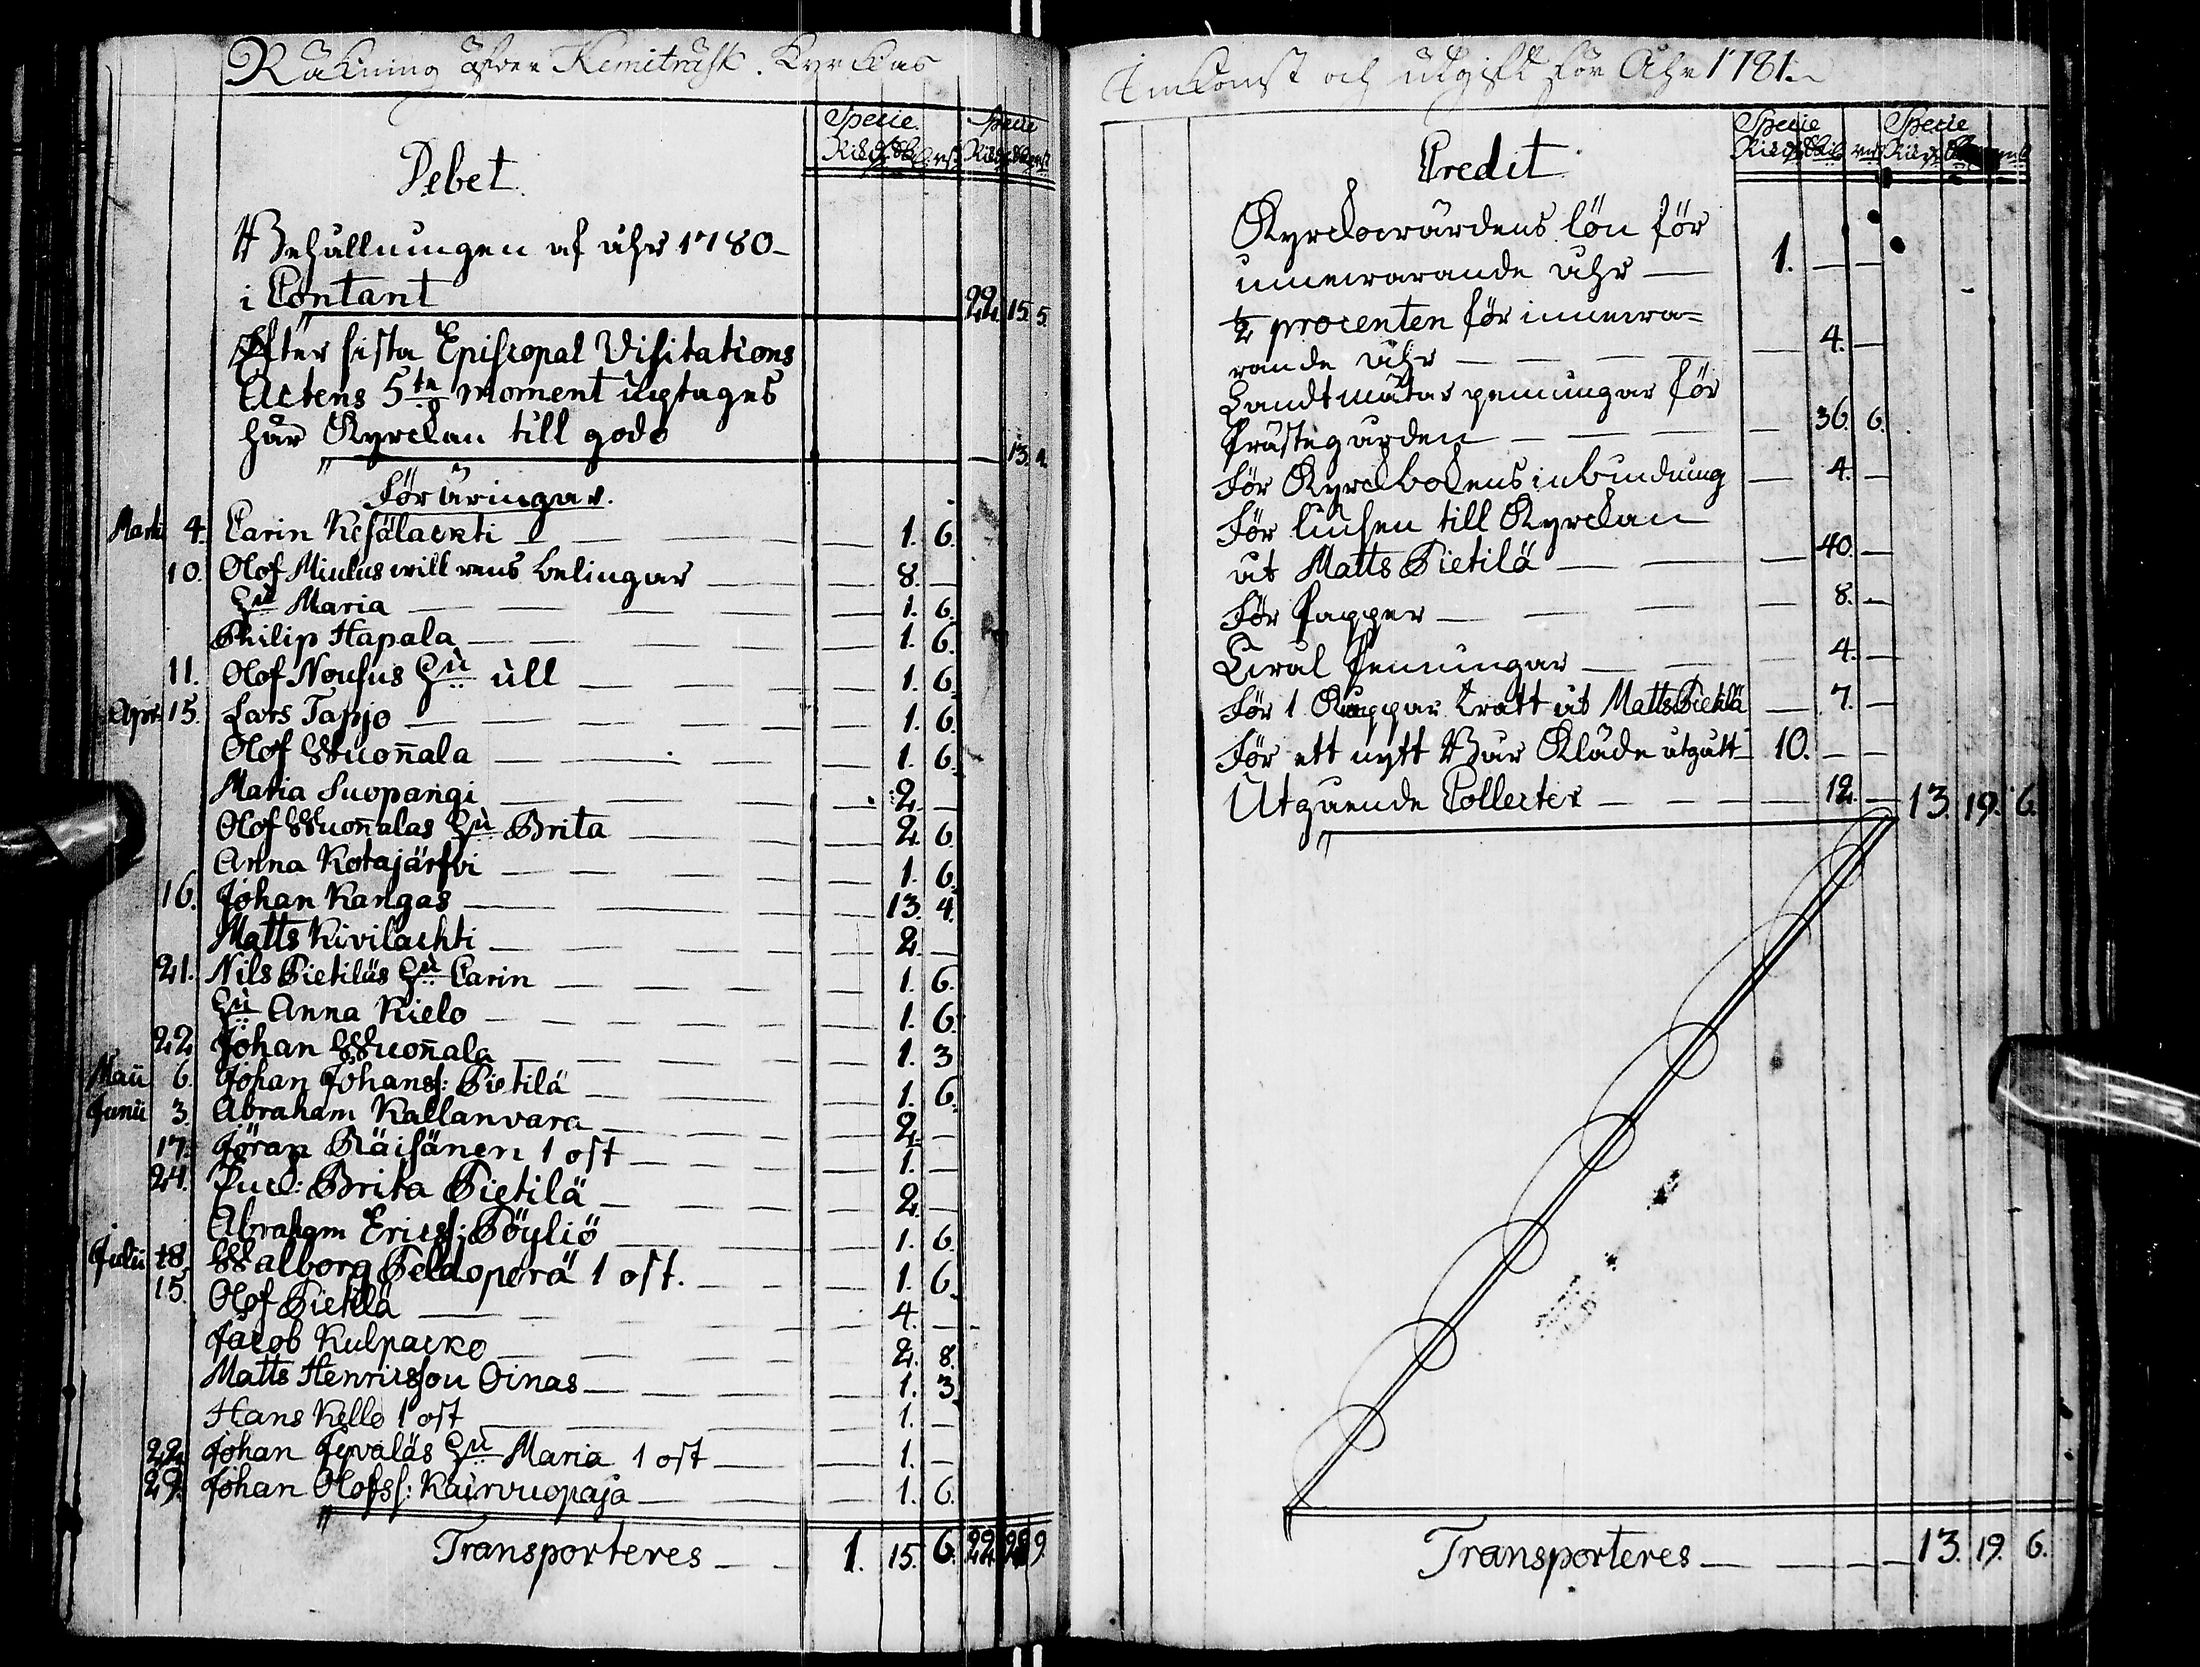 Räkning öfver Kemiträsk Kyrckas
Debet.
Specie Riksd. Sk. rst. Specie Riksd. Sk. rst.
Behållningen af åhr 1780
i Contant 22. 15. 5.
Efter sista Episcopal Visitations
Actens 5te moment uptages
här Kyrckan till godo — 13. 4.
Föräringar.
Martii 4. Carin Kesälackti — 1. 6.
10. Olof — 8. —
Hu Maria — 1. 6.
Philip Hapala — 1. 6.
11. Olof Nousus Hu ull — 1. 6.
Apr. 15. Lars Tapio — 1. 6.
Olof Wuoñala — 1. 6.
Maria Suopangi — 2. —
Olof Wuoñalas Hu Brita — 2. 6.
Anna Kotajärfvi — 1. 6.
16. Johan Kangas — 13. 4.
Matts Kivilachti — 2. —
21. Nils Pietiläs Hu Carin — 1. 6.
Hu Anna Kielo — 1. 6.
22 Johan Wuoñala — 1. 3
Maii 6. Johan Johanss: Pietilä — 1. 6.
Junii 3. Abraham Kallanvara — 2. —
17. Jöran Räisänen 1 ost — 1. —
24. Pig: Brita Pietilä — 2. —
Abraham Ericss: Pöyliö — 1. 6.
Julii 8. Walborg Peldoperä 1 ost. — 1. 6.
15. Olof Pietilä — 4. —
Jacob Kulpacko — 2. 8.
Matts Henricsson Oinas — 1. 3.
Hans Kello 1 ost — 1. —
22 Johan Jyväläs Hu Maria 1 ost — 1. —
29. Johan Olofss: Kairivuopaja — 1. 6.
Transporteres — 1. 15. 6. 22. 28 9.
Inkomst och utgift för Åhr 1781.
Credit
Specie Riksd. Skil. rst. Specie Riksd.
Kyrckowärdens lön för
innewarande åhr — 1. — —
½ procenten för innewa=
rande åhr — 4. —
Landtmätar penningar för
Prästegården — 36. 6.
För Kyrckbokens inbindning — 4. —
För liusen till Kyrckan
åt Matts Pietilä — 40. —
För Papper — 8. —
Cural Penningar — 4. —
För 1 Kappar tratt åt Matts Pietilä — 7. —
För ett nytt Bår Kläde utgått 10. — —
Utgående Collecter — 12. — 13. 19. 6.
Transporteres — 13. 19. 6.